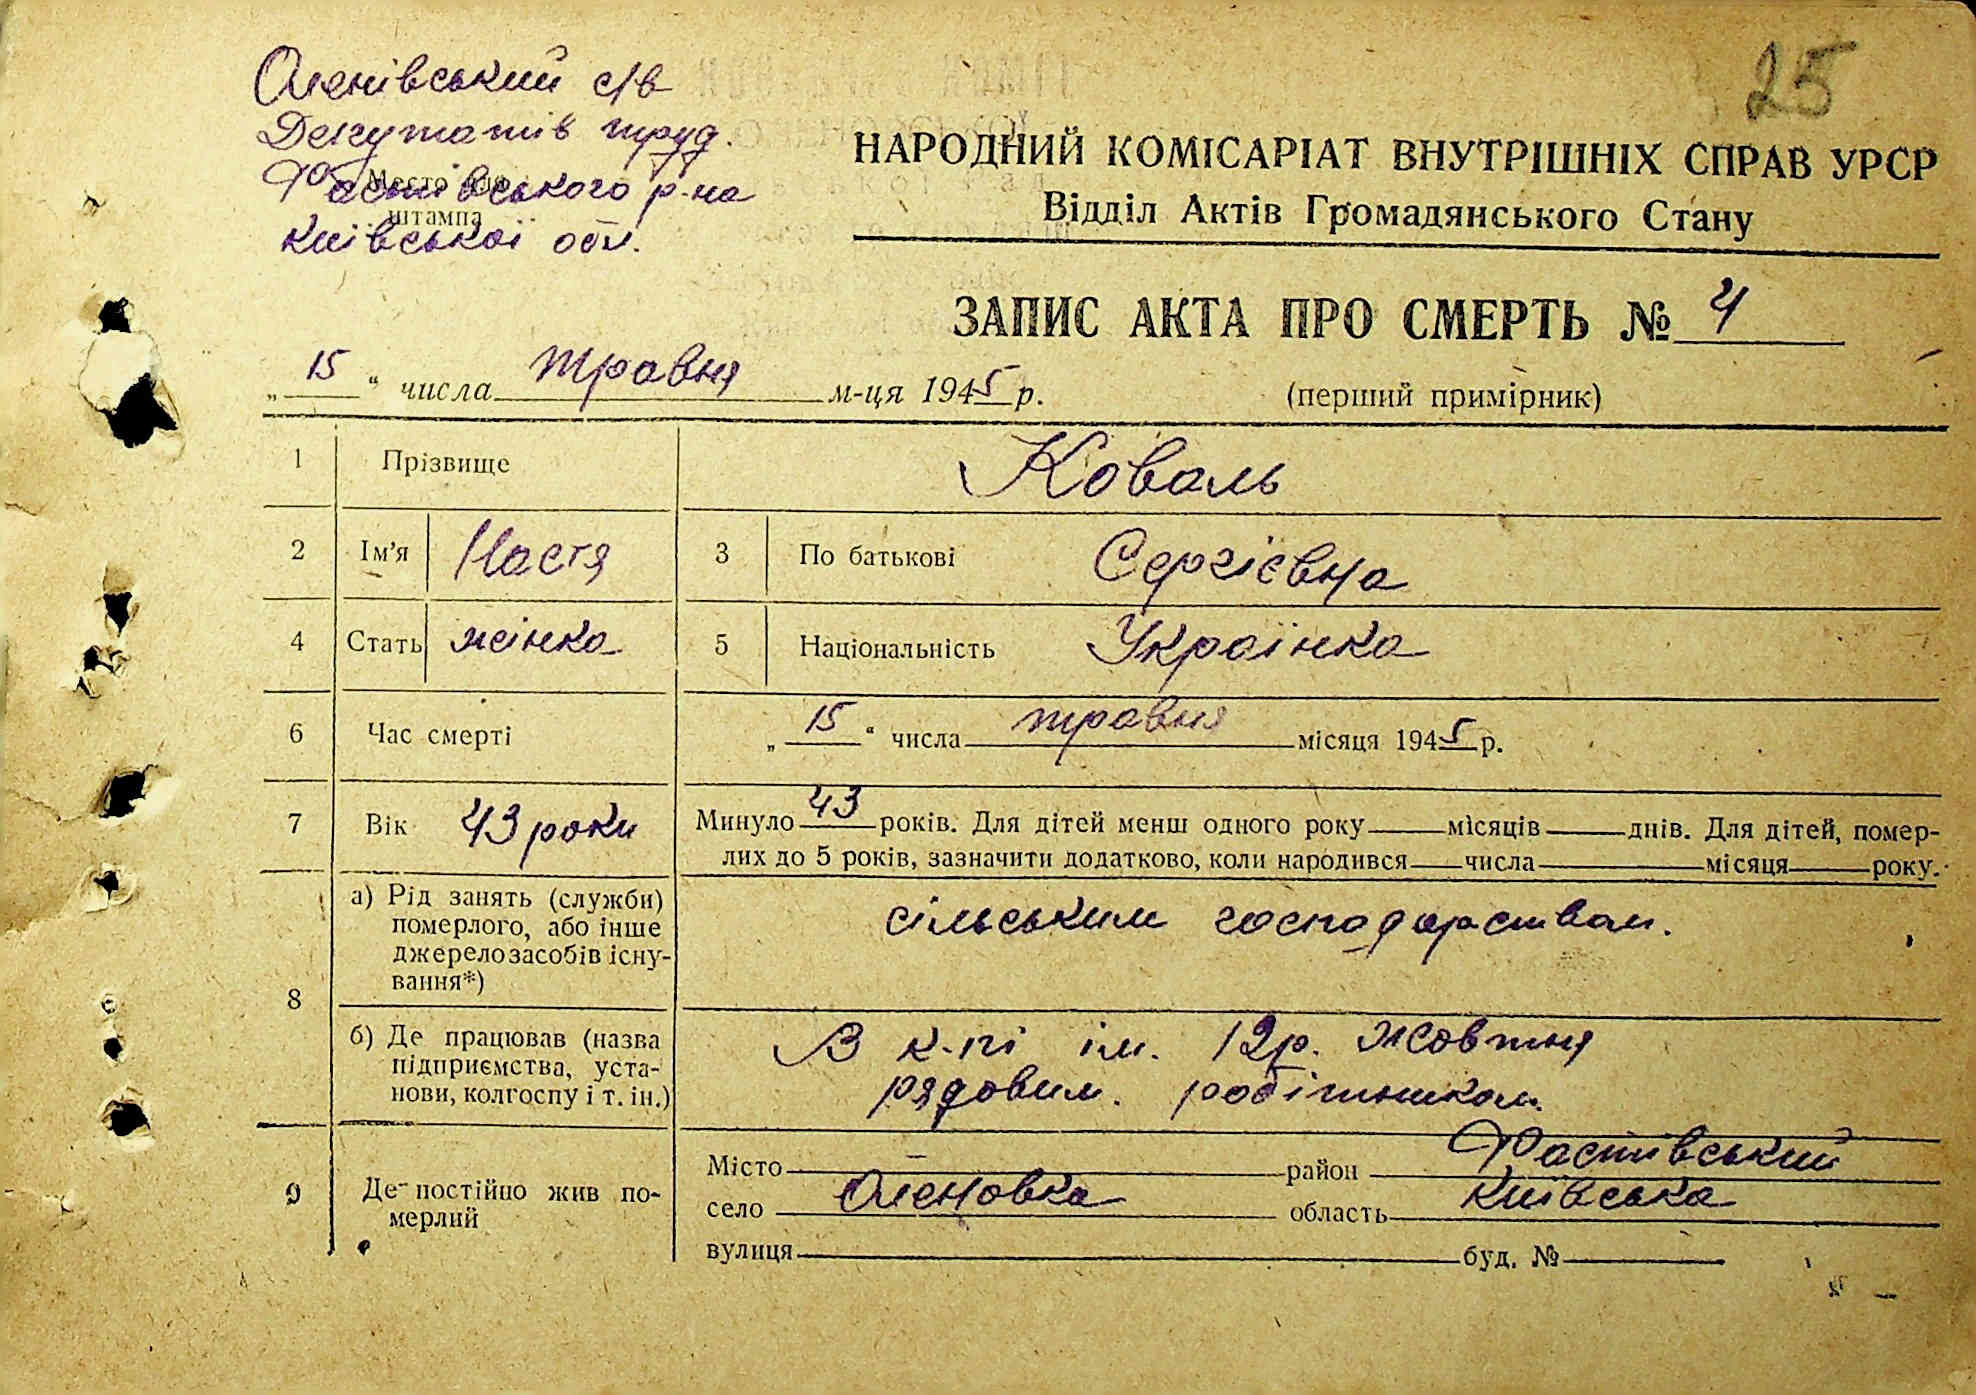 25
Оленівський с/в
Депутатів труд.
Фастівського р-на
Київської обл.
Место для
штампа
НАРОДНИЙ КОМІСАРІАТ ВНУТРІШНІХ СПРАВ УРСР
Відділ Актів Громадянського Стану
ЗАПИС АКТА ПРО СМЕРТЬ № 4
„ 15 “ числа травня м-ця 1945 р.
(перший примірник)
1 Прізвище Коваль
2 Ім'я Настя 3 По батькові Сергієвна
4 Стать жінка 5 Національність Українка
6 Час смерті „ 15 “ числа травня місяця 1945 р.
7 Вік 43 роки Минуло 43 років. Для дітей менш одного року місяців днів. Для дітей, помер-
лих до 5 років, зазначити додатково, коли народився числа місяця року.
8 а) Рід занять (служби)
померлого, або інше
джерело засобів існу-
вання*)
сільським господарством.
б) Де працював (назва
підприємства, уста-
нови, колгоспу і т. ін.)
В к-пі ім. 12 р. Жовтня
рядовим. робітником.
9 Де постійно жив по-
мерлий
Місто — район Фастівський
село Оленовка область Київська
вулиця буд. №